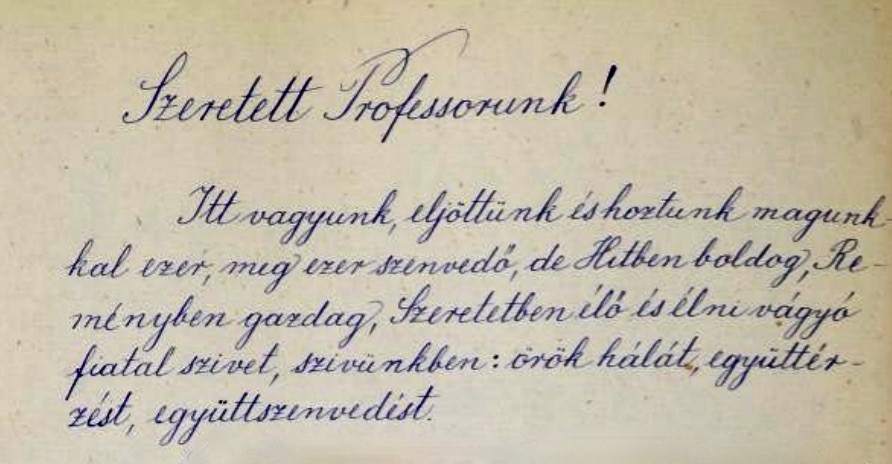 Szeretett Professorunk!
Itt vagyunk, eljöttünk és hoztunk magunk
kal ezer, meg ezer szenvedő, de Hitben boldog, Re-
ményben gazdag, Szeretetben élő és élni vágyó
fiatal szivet, szivünkben: örök hálát, együttér-
zést, együttszenvedést.